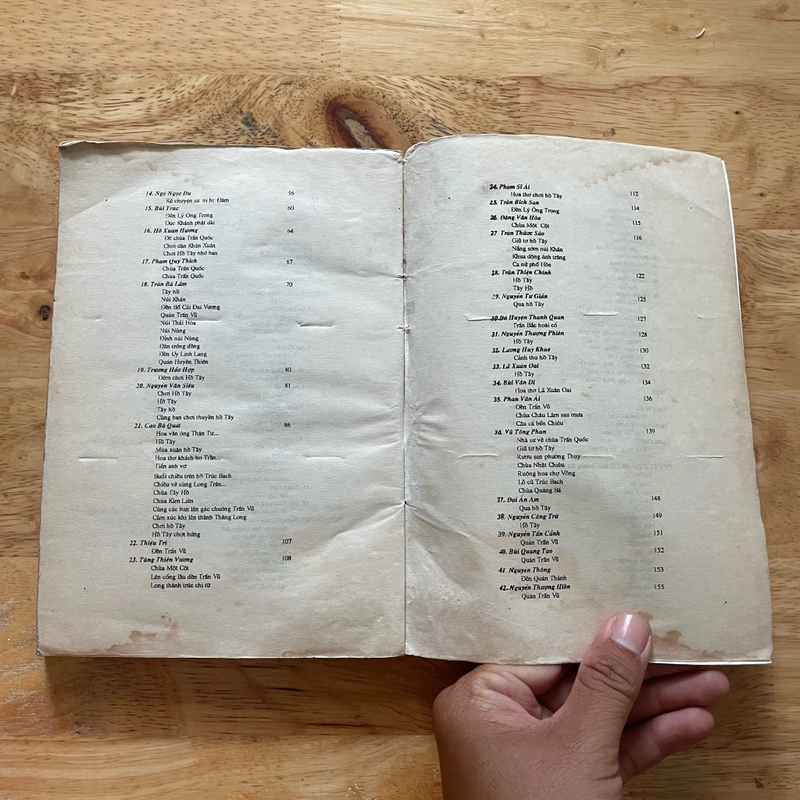 14. Ngô Ngọc Du 56
Kể chuyện sư ni hc Đàm
15. Bùi Trục 60
Đền Lý Ông Trọng
Dục Khánh phật dài
16. Hồ Xuân Hương 64
Đề chùa Trấn Quốc
Chơi đàn Khán Xuân
Chơi Hồ Tây nhớ bạn
17. Phạm Quý Thích 67
Chùa Trấn Quốc
Chùa Trấn Quốc
18. Trần Bá Lãm 70
Tây hồ
Núi Khán
Đền Bố Cái Đại Vương
Quán Trấn Vũ
Núi Thái Hòa
Núi Nùng
Đỉnh núi Nùng
Đàn trống đồng
Đền Uy Linh Lang
Quán Huyền Thiên
19. Trương Hảo Hợp 80
Đêm chơi Hồ Tây
20. Nguyễn Văn Siêu 81
Chơi Hồ Tây
Hồ Tây
Tây hồ
Cùng bạn chơi thuyền hồ Tây
21. Cao Bá Quát 86
Họa vần ông Thận Tư...
Hồ Tây
Mùa xuân hồ Tây
Họa thơ khách họ Trần...
Tiễn anh vợ
Buổi chiều trên hồ Trúc Bạch
Chiều về cùng Long Trân...
Chùa Tây Hồ
Chùa Kim Liên
Cùng các bạn lên gác chuông Trấn Vũ
Cảm xúc khi lên thành Thăng Long
Chơi hồ Tây
Hồ Tây chợt hứng
22. Thiệu Trị 107
Đền Trấn Vũ
23. Tùng Thiện Vương 108
Chùa Một Cột
Lên cổng lầu đền Trấn Vũ
Long thành trúc chi từ
24. Phạm Sĩ Ái 112
Họa thơ chơi hồ Tây
25. Trần Bích San 114
Đền Lý Ông Trọng
26. Đặng Văn Hòa 115
Chùa Một Cột
27 Trần Thức Sào 116
Giữ tơ hồ Tây
Nắng sớm núi Khán
Khua dông ánh trăng
Ca nữ phố Hòe
28. Trần Thiện Chính 122
Hồ Tây
Tây Hồ
29. Nguyễn Tư Giản 125
Qua hồ Tây
30. Bà Huyện Thanh Quan 127
Trấn Bắc hoài cổ
31. Nguyễn Thượng Phiên 128
Hồ Tây
32. Lương Huy Khuê 130
Cảnh thu hồ Tây
33. Lã Xuân Oai 132
Hồ Tây
34. Bùi Văn Dị 134
Họa thơ Lã Xuân Oai
35. Phan Văn Ái 136
Đền Trấn Võ
Chùa Châu Lâm sau mưa
Câu cá bến Chiêu
36. Vũ Tông Phan 139
Nhà sư về chùa Trấn Quốc
Giữ tơ hồ Tây
Rượu sen phường Thụy
Chùa Nhật Chiêu
Ruộng hoa chợ Võng
Lò cũ Trúc Bạch
Chùa Quảng Bá
37. Đại Ẩn Am 148
Qua hồ Tây
38. Nguyễn Công Trứ 149
Hồ Tây
39. Nguyễn Tấn Cảnh 151
Quán Trấn Vũ
40. Bùi Quang Tạo 152
Quán Trấn Vũ
41 Nguyễn Thông 153
Đền Quán Thánh
42. Nguyễn Thượng Hiền 155
Quán Trấn Vũ